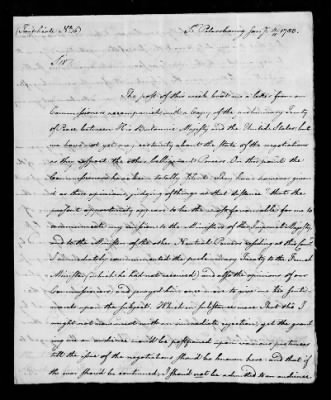 (Duplicate No. 16)
St. Petersbourg Jany. 1783.
Sir
The post of this week brought me a letter from our
Commissioners accompanied with a Copy of the preliminary Treaty
of Peace between His Britannic Majesty and the United States, but
we have not yet any certainty about the State of the negotiations
as they respect the other belligerent Powers. On this point the
Commissioners have been totally silent. They have however given
it as their opinion, judging of things at that distance "that the
present opportunity appears to be the most favourable for me to
communicate my mission to the Ministers of Her Imperial Majesty,
and to the Ministers of the other Neutral Powers residing at this Court."
I immediately communicated the preliminary Treaty to the French
Minister, (which he had not received) and also the opinions of our
Commissioners, and prayed him once more to give me his senti-
ments upon the subject. What in substance was That tho' I
might not now meet with an immediate rejection, yet the grant-
ing me an audience would be postponed upon various pretences
till the issue of the negotiations should be known here, and that if
the war should be continued, I should not be admitted to an audience.